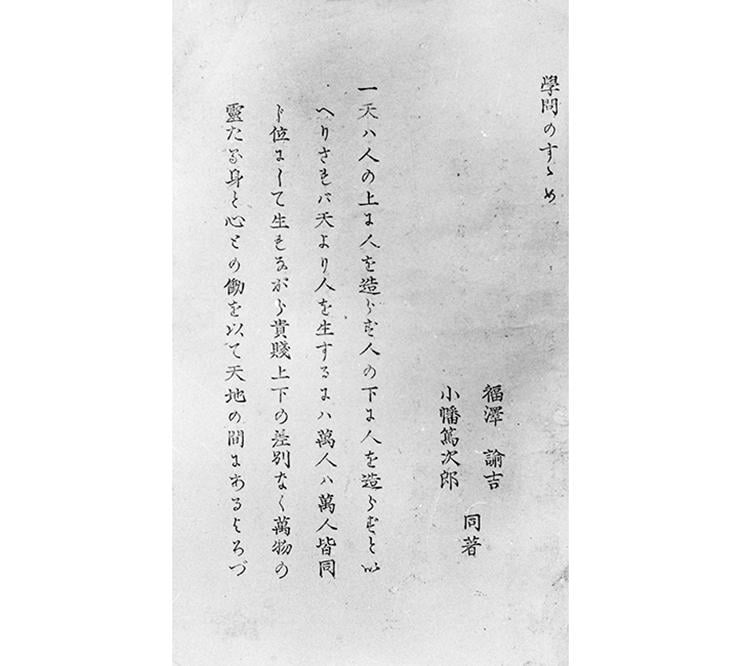 學問のすゝめ
福澤 諭吉
小幡篤次郎
同著
一天ハ人の上に人を造らず人の下に人を造らずとい
へりされバ天より人を生するにハ萬人ハ萬人皆同
じ位にして生れながら貴賤上下の差別なく萬物の
靈たる身と心との働を以て天地の間にあるよろづ